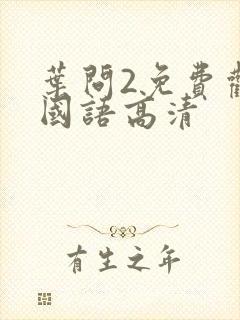 葉問2免費觀
國語高清
有生之年